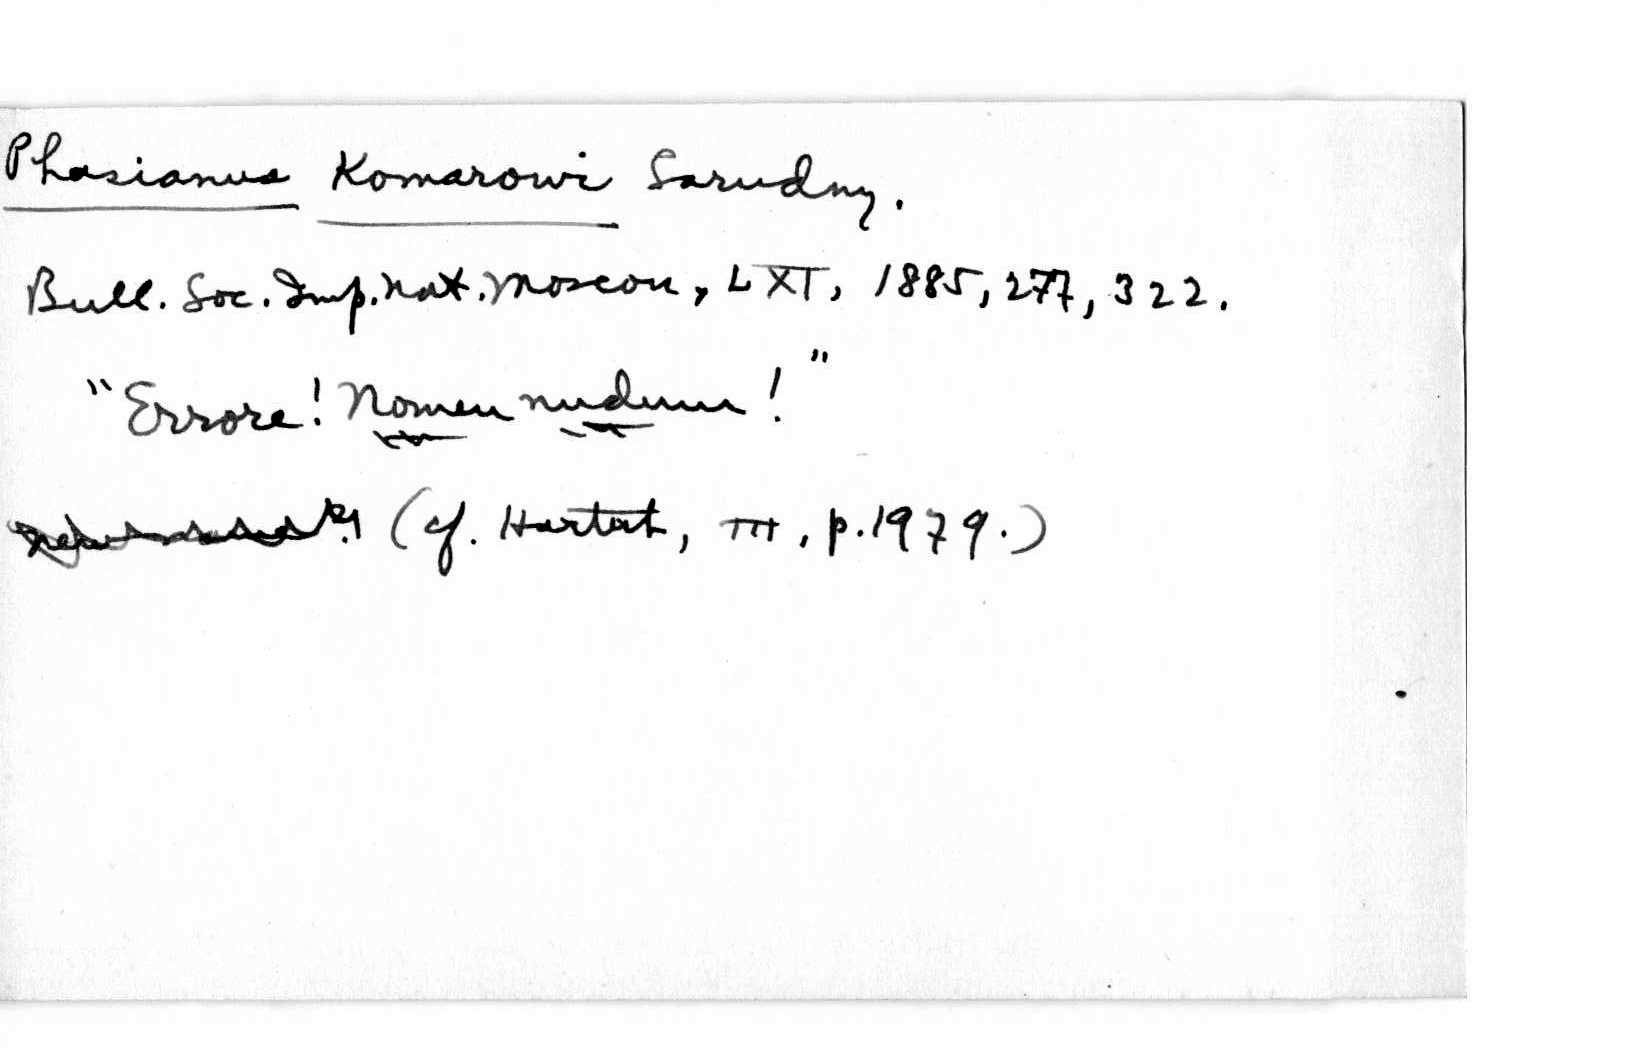 Phasianus Komarowi Sarudny.
Bull. Soc. Imp. Nat. Moscou, LXI, 1885, 277, 322.
"Errore! Nomen nudum!"
(cf. Hartert, III, p. 1979.)